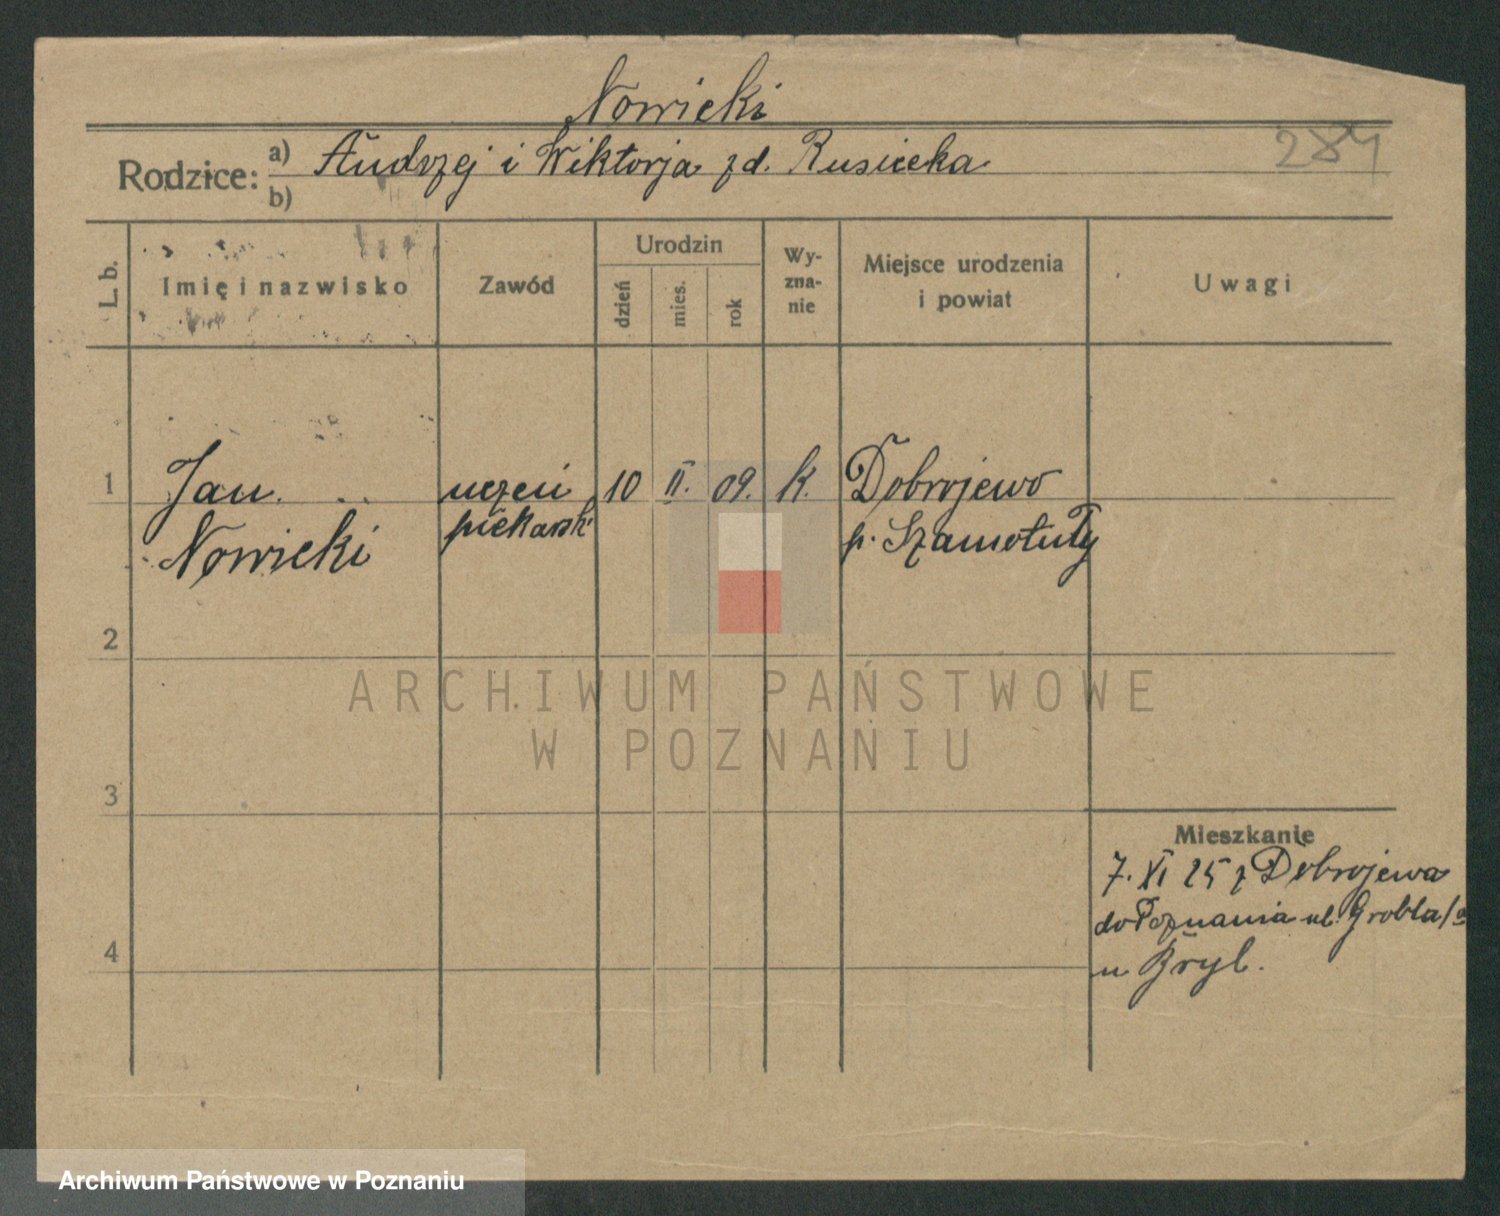 Nowicki
284
Rodzice: a) Andrzej i Wiktorja zd. Rusiecka
b)
L. b. Imię i nazwisko Zawód Urodzin dzień mies. rok Wyznanie Miejsce urodzenia i powiat Uwagi
1 Jan uczeń 10 II. 09. K. Dobrojewo
Nowicki piekarsk. p. Szamotuły
2
3
4
Mieszkanie
7. XI 25 z Dobrojewa
do Poznania ul. Grobla
u Bryl.
ARCHIWUM PAŃSTWOWE
W POZNANIU
Archiwum Państwowe w Poznaniu